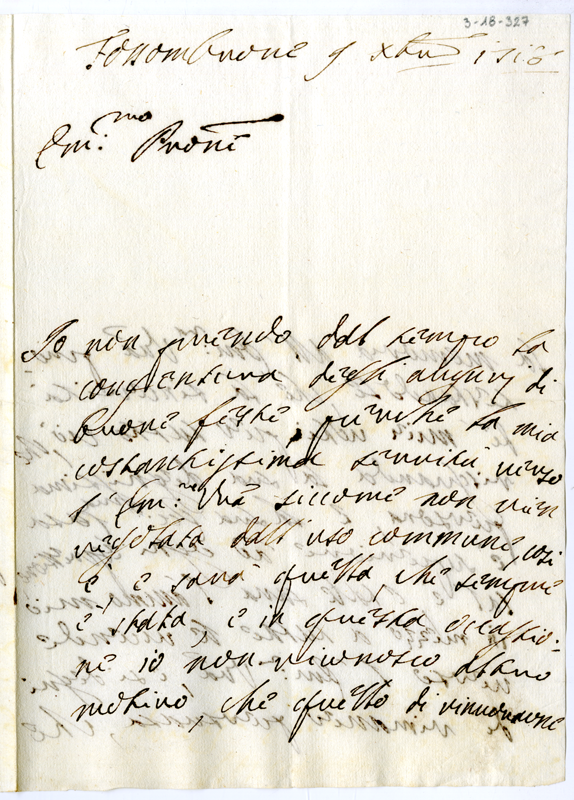 3-18-327
Fossombrone 9 Xbre
Em.mo Prone
Io non prendo dal tempo la
congiuntura degli augurj di
buone feste, perche la mia
costantissima servitù verso
l'Em.ma Vra siccome non vien
regolata dall'uso commune, così
e e sarà quella, che sempre
è stata, e in questa occasio:
ne io non riconosco altro
motivo, che quello di rinnovare